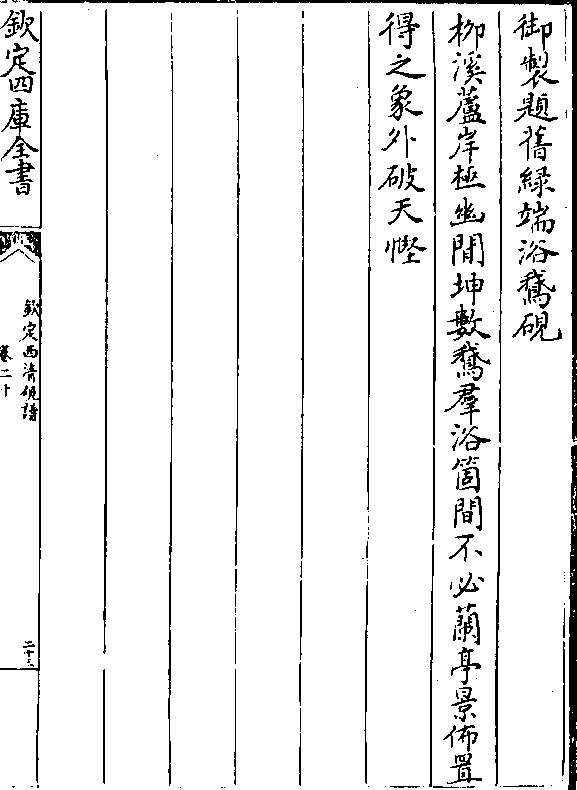 御製題舊緑端浴鵞硯
柳溪蘆岸極幽閒坤數鵞羣浴箇間不必蘭亭景佈置
得之象外破天慳
欽定四庫全書
欽定西清硯譜
卷二十
二十三